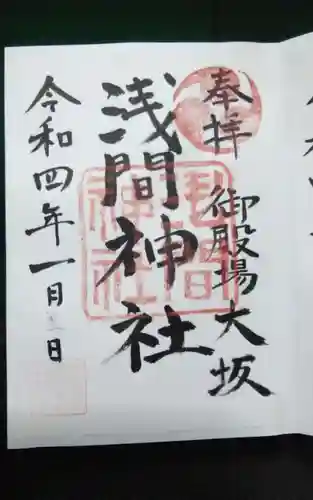 奉拝 御殿場大坂
浅間神社
浅間神社
令和四年一月 日